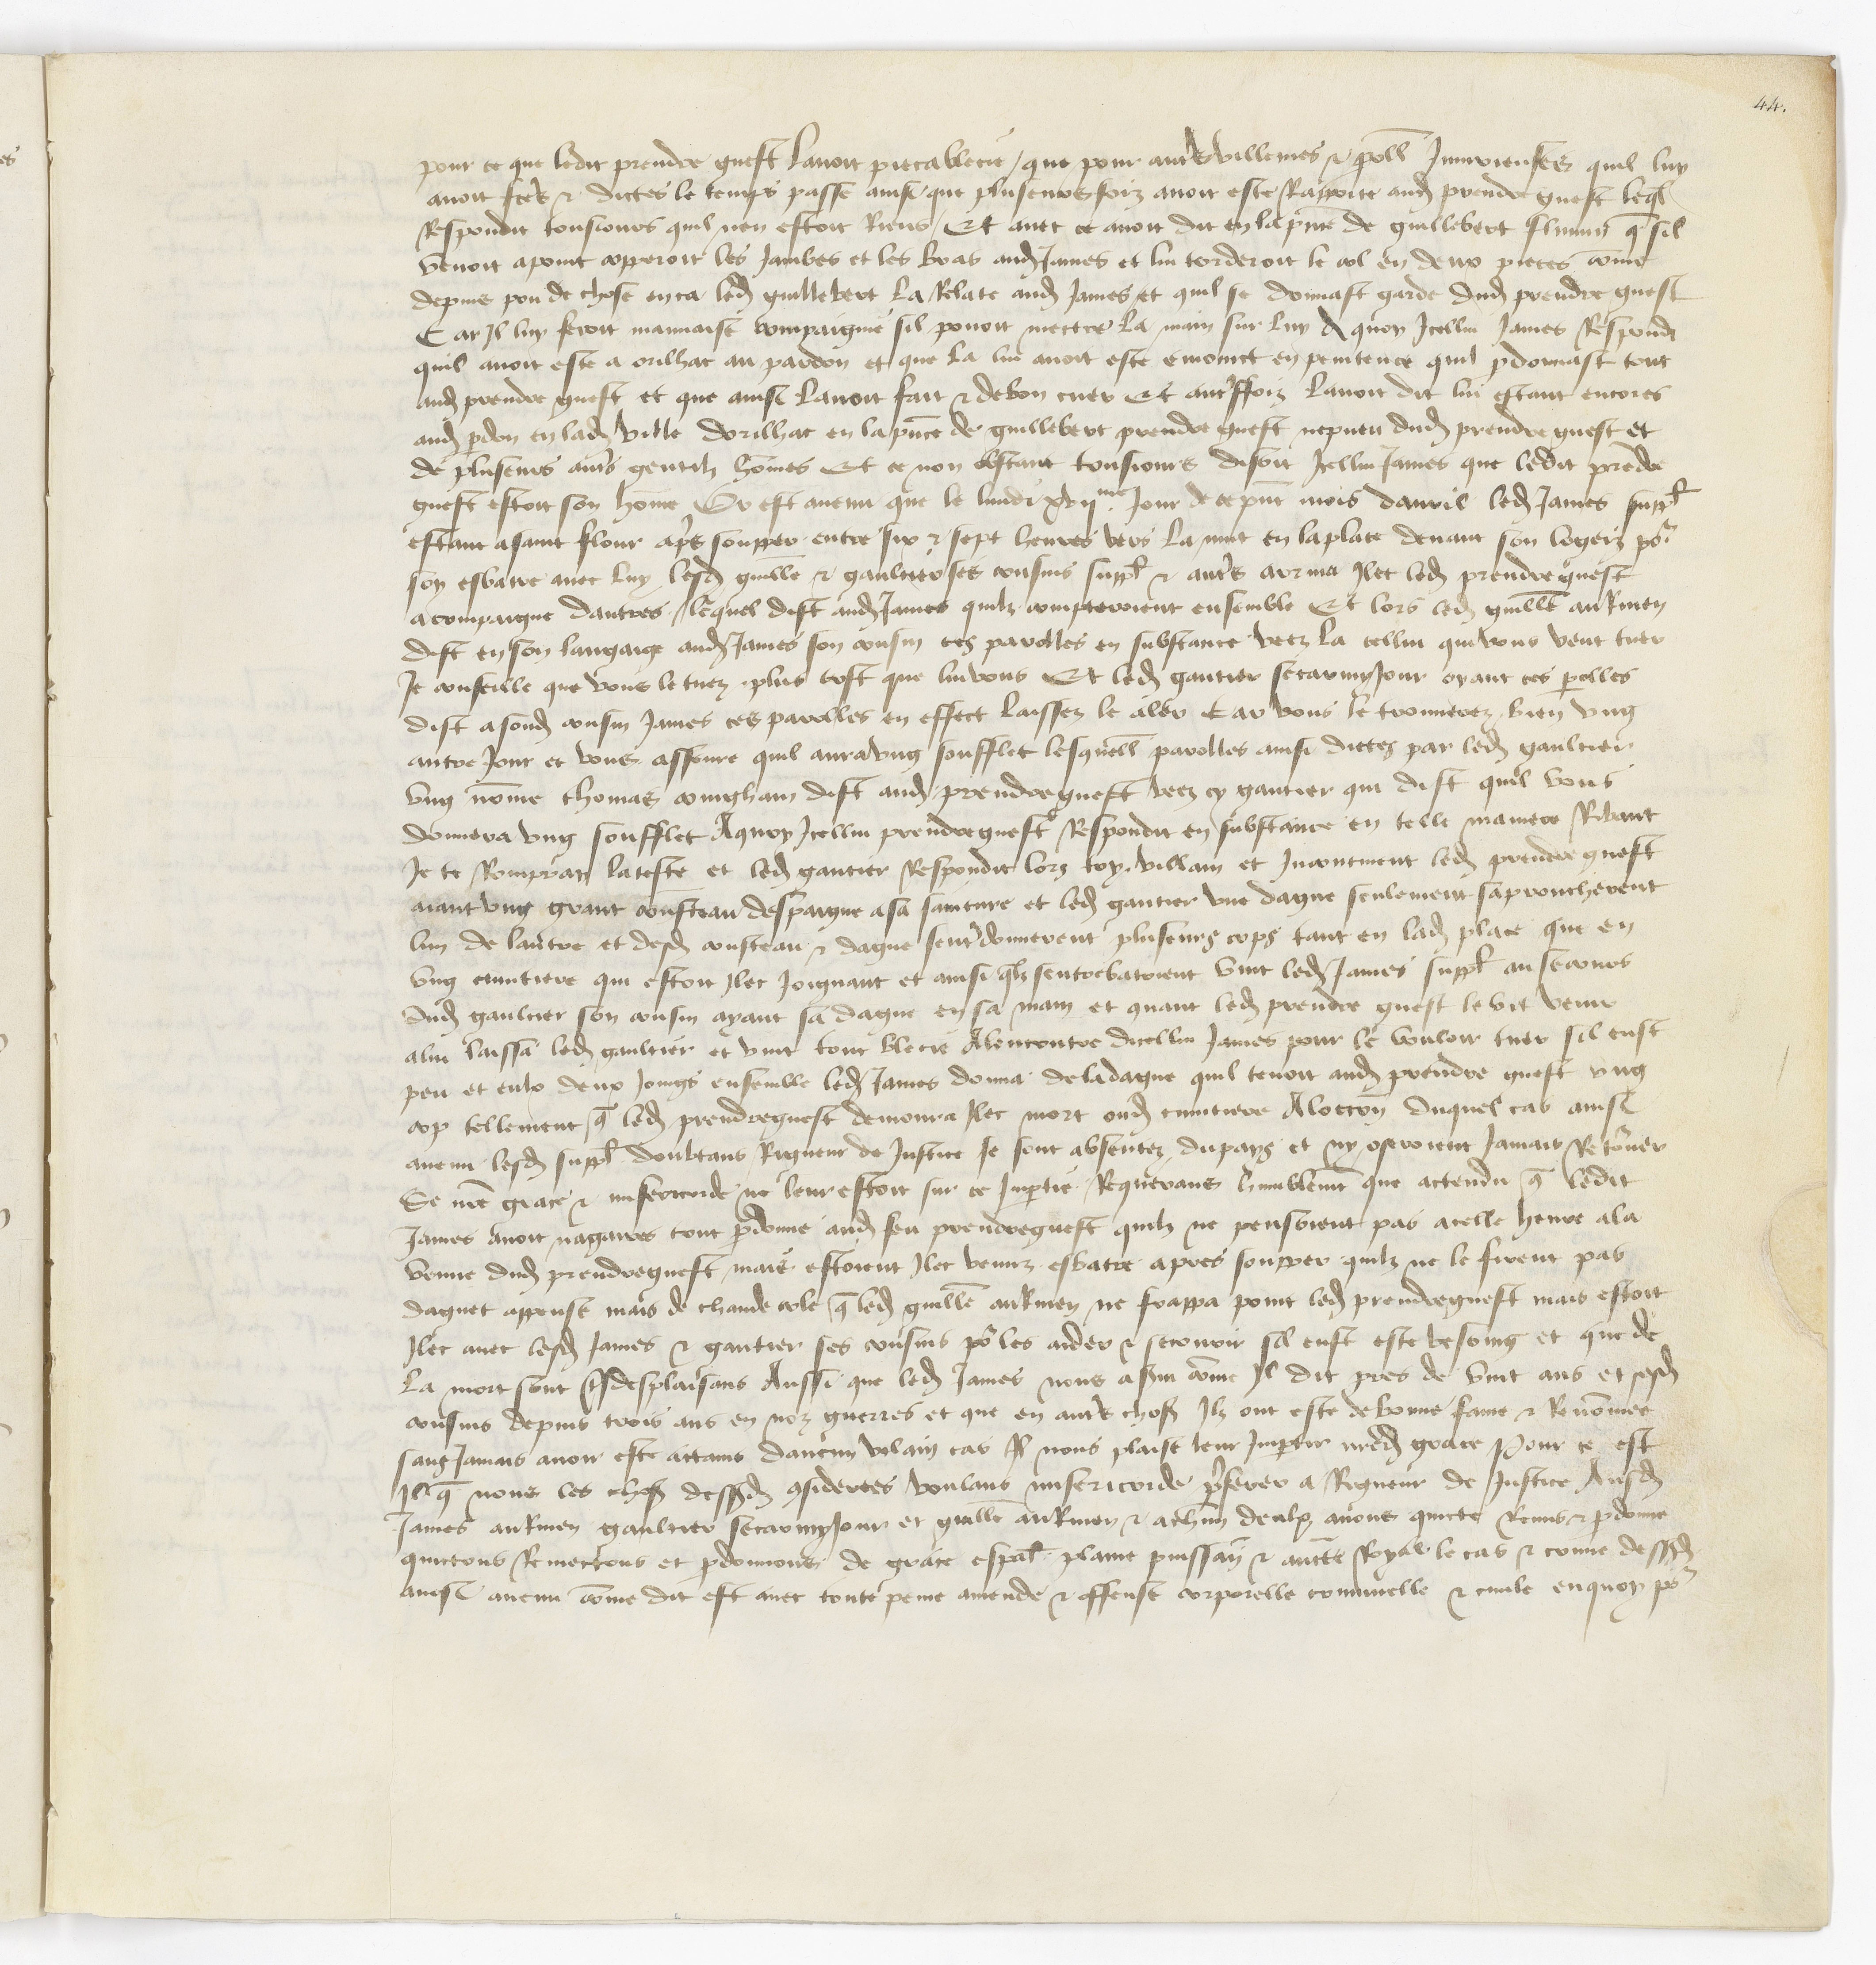 44.
pour ce que ledit prendre guest lavoit pieca blecie / que pour autres villenies & parolles Iniurieuses quil luy
avoit fces & dictes le temps passe ainsi que pluseurs foiz avoit este Raporte aud prendre guest leql
Respondit tousiours quil nen estoit Riens / Et avec ce avoit dit en la pnce de guillebert q sil
venoit apoint copperoit les Jambes et les bras aud James et lui torderoit le col en deux pieces come
depuis pou de chose enca led guillebert la Relate aud James et quil se donnast garde dud prendre guest
Car Il luy feroit mauvaise compaignie sil povoit mectre la main sur luy A quoy Icellui James Respondi
quil avoit este a orilhac au pardon et que la lui avoit este enioinct en penitence quil pdonnast tout
aud prendre guest et que ainsi lavoit fait & de bon cuer Et autreffoiz lavoit dit lui estant encores
aud pdon en lad ville dorilhac en la pnce de guillebert prendre guest nepveu dud prendre guest et
de pluseurs autres gentilz homes Et ce non obstant tousiours disoit Icellui James que ledit prendre
guest estoit son home Or est avenu que le lundi xvij me Jour de ce pnt mois davril led James suppl
estant a saint flour apres soupper entre six & sept heures vers la nuit en la place devant son logeiz por
soy esbatre avec luy lesd guille & gaultier ses cousins suppl & autres arriva Ilec led prendre guest
acompaigne dautres / lequel dist aud James quilz compteroient ensemble Et lors led guille aukmen
dist en son langaige aud James son cousin ces parolles en substance veez la cellui qui vous veut tuer
Je conseille que vous le tuez plus tost que lui vous Et led gautier secarmyJour oyant ces parolles
dist a sond cousin James ces parolles en effect laissez le aler Car vous le trouverez bien ung
autre Jour et vous asseure quil aura ung soufflet lesquell parolles ainsi dictes par led gaultier
Ung nome thomas coingham dist aud prendre guest veez cy gautier qui dist quil vous
donnera ung soufflet Aquoy Icellui prendreguest Respondit en substance en telle maniere Ribaut
Je te Rompray la teste et led gautier Respondit lors toy villain et Incontinent led prendre guest
aiant ung grant cousteau despaigne a sa sainture et led gautier une dague seulement saprouchèrent
lun de lautre et desd cousteau & dague sentredonnerent pluseurs cops tant en lad place que en
ung cimitiere qui estoit Ilec Joignant et ainsi qlz sentrebatoient vint led James suppl au secours
dud gaultier son cousin ayant sa dague en sa main et quant led prendre guest le vit venir
a lui laissa led gaultier et vint tout blecie Alencontre dicellui James pour le vouloir tuer sil eust
peu et eulx deux Joings ensemble led James donna de la dague quil tenoit aud prendre guest ung
cop tellement q led prendreguest demoura Ilec mort oud cimitiere A loccon duquel cas ainsi
avenu lesd suppl doubtans Rigueur de Justice se sont absentez du pays et ny oseroient Jamais Retorner
Se nre grace & misericorde ne leur estoit sur ce Impartie Requerans humblemt que actendu q ledit
James avoit nagaires tout pdonne aud feu prendreguest quilz ne pensoient pas a celle heure a la
venue dud prendreguest mais estoient Ilec venuz esbatre apres soupper quilz ne le firent pas
daguet appense mais de chaude cole q led guille aukmen ne frappa point led prendreguest mais estoit
Ilec avec lesd James & gautier ses cousins por les aider & secourir sil eust este besoing et que de
la mort sont tresdesplaisans Aussi que led James nous a svi come Il dit pres de vint ans et sesd
cousins depuis trois ans en noz guerres et que en autres chos Ilz ont este de bonne fame & Renomee
sans Jamais avoir este attains daucun vilain cas Il nous plaise leur Impartir nred grace Pour ce est
Il q nous les chos dessd considerees voulans misericorde preferer a Rigueur de Justice Ausd
James aukmen gaultier secarmyJour et guille aukmen & a chun deulx avons quicte Remis & pdonne
quictons Remectons et pdonnons de grace espal plaine puissan & aucte Royal le cas & crime dessd
ainsi avenu come dit est avec toute peine amende & offense corporelle criminelle & civile enquoy por